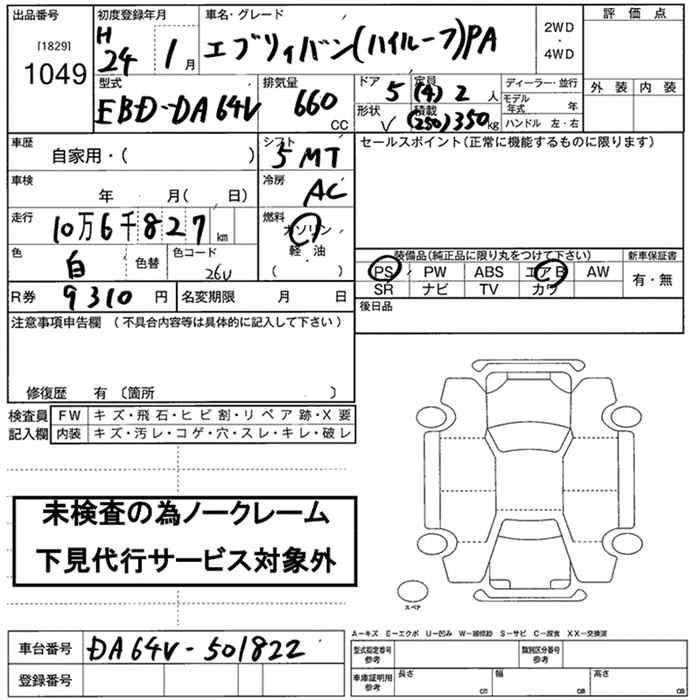 出品番号
[1829]
1049
初度登録年月
H
24 1 月
車名・グレード
エブリィバン(ハイルーフ)PA
2WD
・
4WD
評価点
外装 内装
型式
EBD-DA64V
排気量
660
CC
ドア
5
定員
(4) 2 人
形状
V
積載
(250) 350 kg
ディーラー・並行
モデル
年式 年
ハンドル 左・右
車歴
自家用・( )
シフト
5MT
セールスポイント(正常に機能するものに限ります)
車検
年 月( 日)
冷房
AC
走行
10万6千827
km
燃料
ガソリン
軽・油
( )
色
白
色替
色コード
26V
装備品(純正品に限り丸をつけて下さい)
新車保証書
PS PW ABS エアB AW
SR ナビ TV カワ
有・無
R券
9310 円
名変期限 月 日
後日品
注意事項申告欄 (不具合内容等は具体的に記入して下さい)
修復歴 有 〔箇所 〕
検査員
記入欄
FW キズ・飛石・ヒビ割・リペア跡・X要
内装 キズ・汚レ・コゲ・穴・スレ・キレ・破レ
未検査の為ノークレーム
下見代行サービス対象外
スペア
車台番号
DA64V-501822
登録番号
A-キズ E-エクボ U-凹み W-補修跡 S-サビ C-腐食 XX-交換済
型式指定番号
参考
類別区分番号
参考
車庫証明用
参考
長さ
cm
幅
cm
高さ
cm